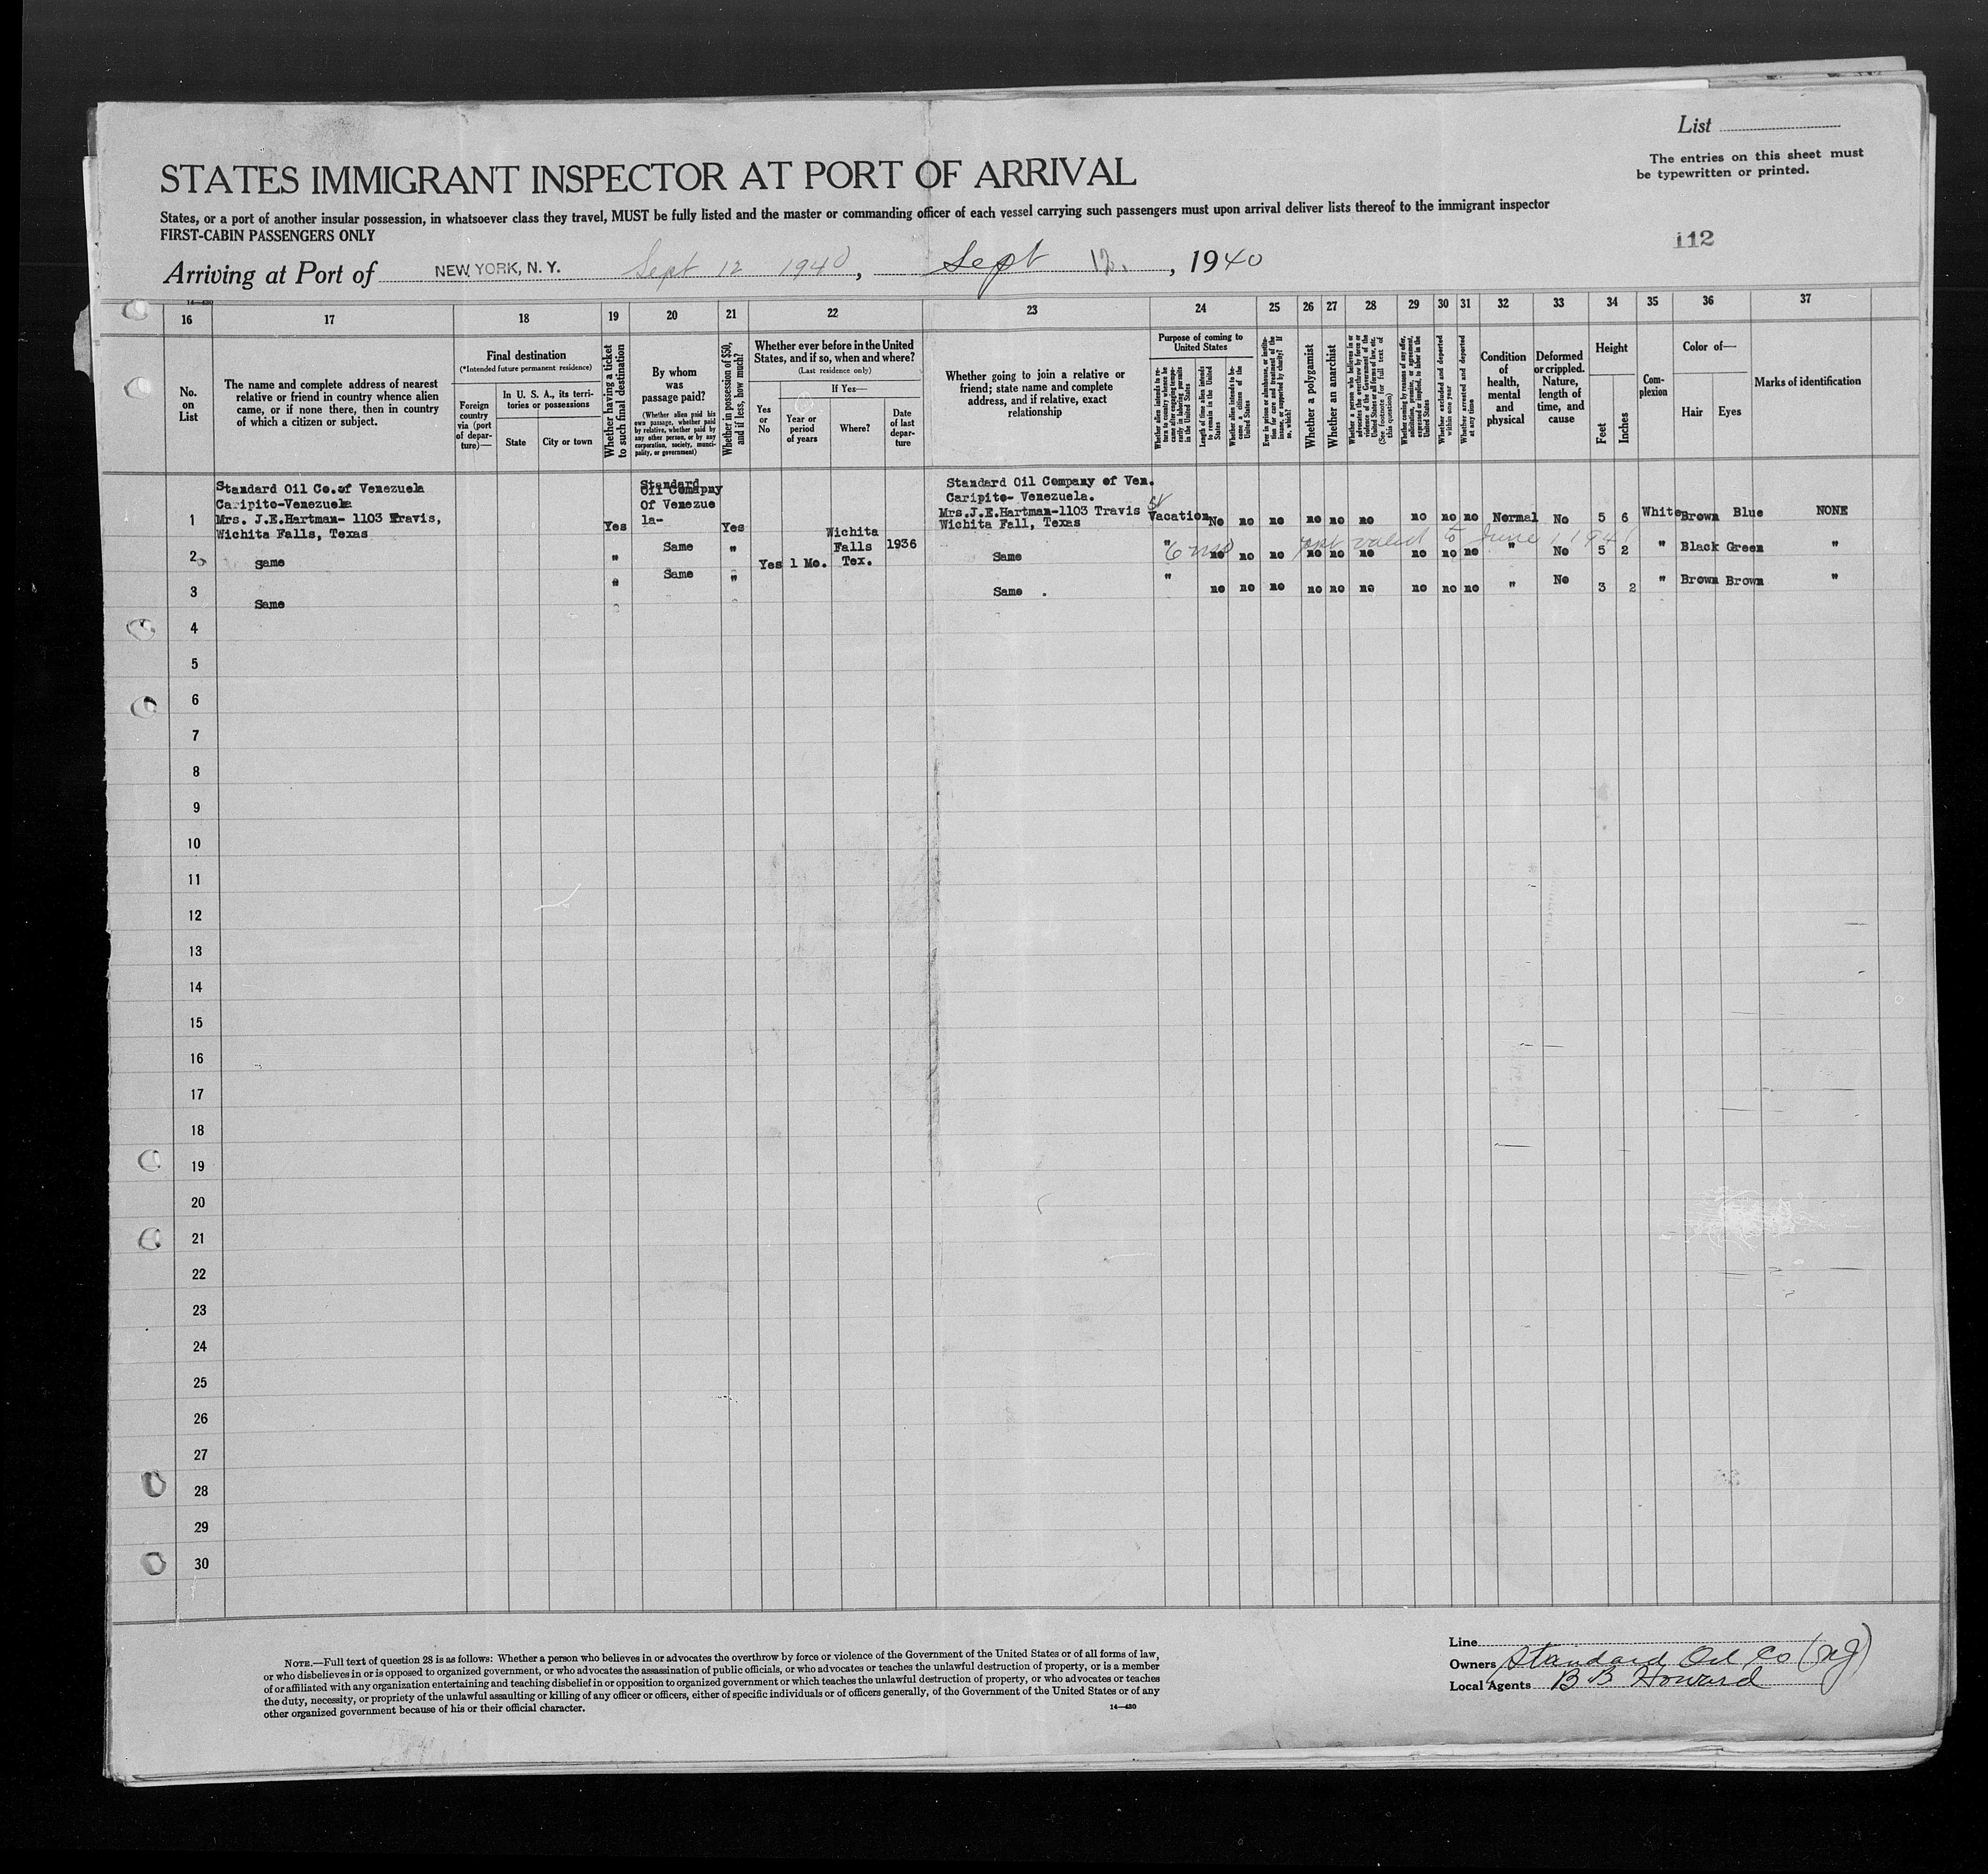 List
The entries on this sheet must
be typewritten or printed.
STATES IMMIGRANT INSPECTOR AT PORT OF ARRIVAL
States, or a port of another insular possession, in whatsoever class they travel, MUST be fully listed and the master or commanding officer of each vessel carrying such passengers must upon arrival deliver lists thereof to the immigrant inspector
FIRST-CABIN PASSENGERS ONLY
112
Arriving at Port of NEW YORK, N. Y. Sept 12 1940, Sept 12, 1940
14—430
16 17 18 19 20 21 22 23 24 25 26 27 28 29 30 31 32 33 34 35 36 37
No.
on
List
The name and complete address of nearest
relative or friend in country whence alien
came, or if none there, then in country
of which a citizen or subject.
Final destination
(*Intended future permanent residence)
Foreign
country
via (port
of depar-
ture)—
In U. S. A., its terri-
tories or possessions
State
City or town
Whether having a ticket
to such final destination
By whom
was
passage paid?
(Whether alien paid his
own passage, whether paid
by relative, whether paid by
any other person, or by any
corporation, society, munici-
pality, or government)
Whether in possession of $50,
and if less, how much?
Whether ever before in the United
States, and if so, when and where?
(Last residence only)
Yes
or
No
If Yes—
Year or
period
of years
Where?
Date
of last
depar-
ture
Whether going to join a relative or
friend; state name and complete
address, and if relative, exact
relationship
Purpose of coming to
United States
Whether alien intends to re-
turn to country whence he
came after engaging tempo-
rarily in laboring pursuits
in the United States
Length of time alien intends
to remain in the United
States
Whether alien intends to be-
come a citizen of the
United States
Ever in prison or almshouse, or institu-
tion for care and treatment of the
insane, or supported by charity? If
so, which?
Whether a polygamist
Whether an anarchist
Whether a person who believes in or
advocates the overthrow by force or
violence of the Government of the
United States or all forms of law, etc.
(See footnote for full text of
this question)
Whether coming by reasons of any offer,
solicitation, promise, or agreement,
expressed or implied, to labor in the
United States
Whether excluded and deported
within one year
Whether arrested and deported
at any time
Condition
of
health,
mental
and
physical
Deformed
or crippled.
Nature,
length of
time, and
cause
Height
Feet
Inches
Com-
plexion
Color of—
Hair
Eyes
Marks of identification
1
Standard Oil Co.of Venezuela
Caripito-Venezuela
Mrs. J.E.Hartman- 1103 Travis,
Wichita Falls, Texas
Yes
Standard
Oil Comapny
Of Venezue
la-
Yes
Standard Oil Company of Ven.
Caripito- Venezuela.
Mrs.J.E.Hartman-1103 Travis St
Wichita Fall, Texas
Vacation No no no no no no no no no Normal No 5 6 White Brown Blue NONE
2 Same " Same " Yes 1 Mo.
Wichita
Falls
Tex.
1936
Same " no no no no no no no no no " No 5 2 " Black Green "
6 mo valid to June 1, 1941
3 Same " Same " Same . " no no no no no no no no no " No 3 2 " Brown Brown "
4
5
6
7
8
9
10
11
12
13
14
15
16
17
18
19
20
21
22
23
24
25
26
27
28
29
30
NOTE.—Full text of question 28 is as follows: Whether a person who believes in or advocates the overthrow by force or violence of the Government of the United States or of all forms of law,
or who disbelieves in or is opposed to organized government, or who advocates the assassination of public officials, or who advocates or teaches the unlawful destruction of property, or is a member
of or affiliated with any organization entertaining and teaching disbelief in or opposition to organized government or which teaches the unlawful destruction of property, or who advocates or teaches
the duty, necessity, or propriety of the unlawful assaulting or killing of any officer or officers, either of specific individuals or of officers generally, of the Government of the United States or of any
other organized government because of his or their official character.
14—430
Line
Owners Standard Oil Co (NJ)
Local Agents B B Howard